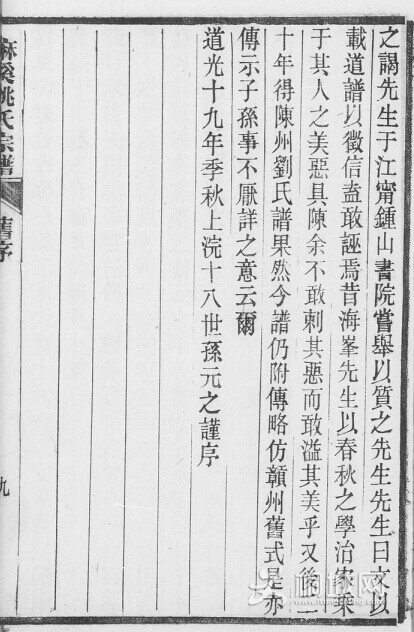 之謁先生于江甯鍾山書院嘗舉以質之先生先生曰文以
載道譜以徵信盍敢誣焉昔海峯先生以春秋之學治家乘
于其人之美惡具陳余不敢刺其惡而敢溢其美乎又後二
十年得陳州劉氏譜果然今譜仍附傳略仿贛州舊式是亦
傳示子孫事不厭詳之意云爾
道光十九年季秋上浣十八世孫元之謹序
麻溪姚氏宗譜
舊序
九